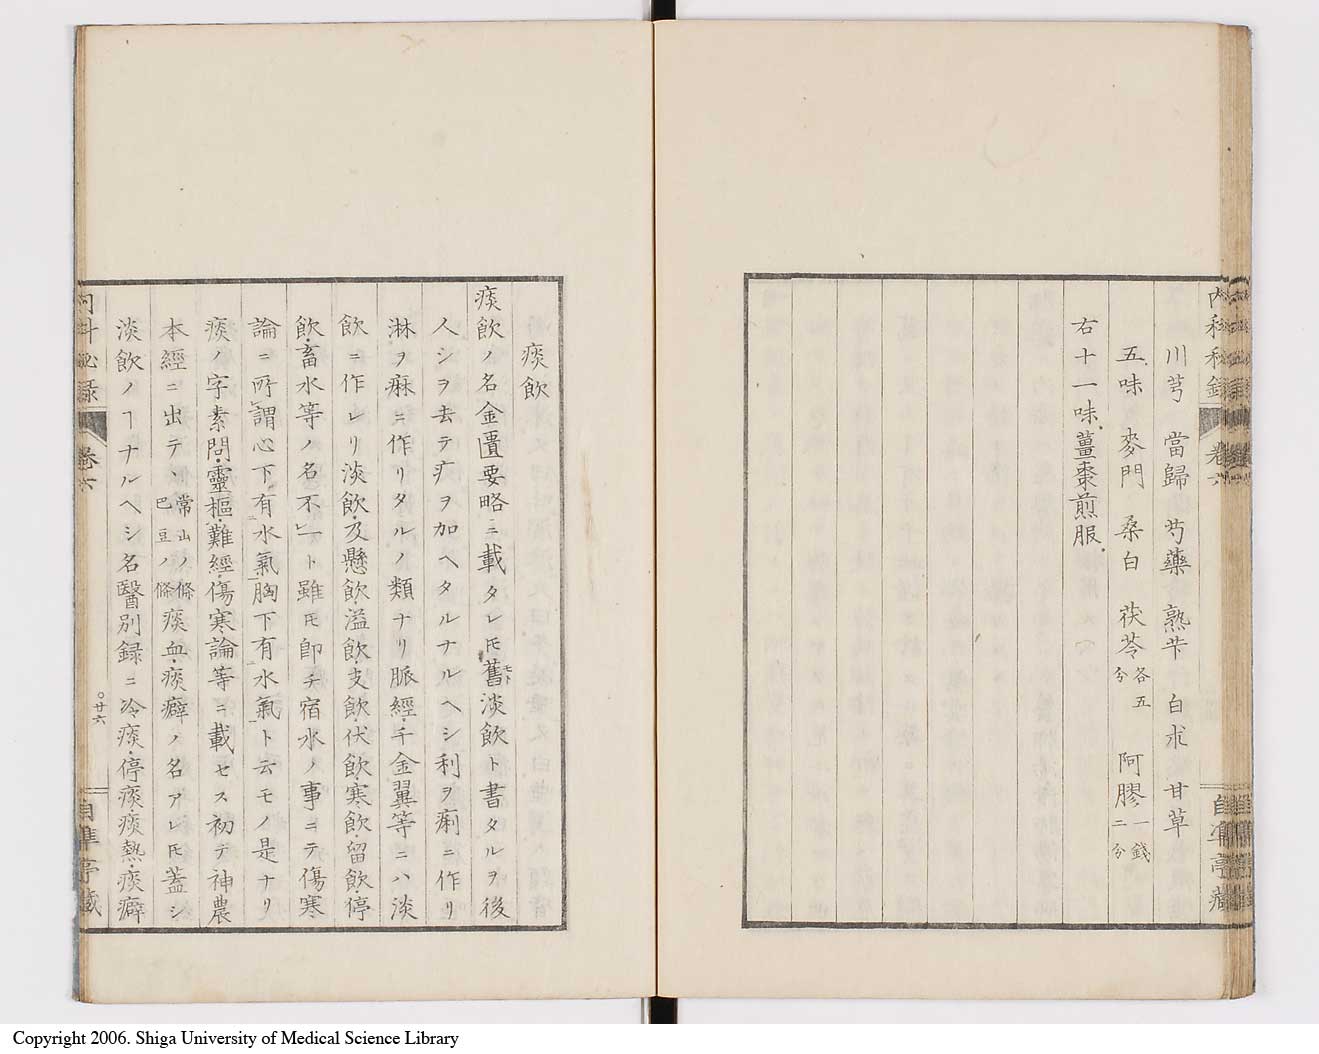 内科秘録
卷六
自準亭藏
川芎 當歸 芍藥 熟芐 白朮 甘草
五味 麥門 桑白 茯苓各五分 阿膠一錢二分
右十一味薑棗煎服
痰飲
痰飲ノ名金匱要略ニ載タレ𪜈舊モト淡飲ト書タルヲ後
人シヲ去テ疒ヲ加ヘタルナルヘシ利ヲ痢ニ作リ
淋ヲ痳ニ作リタルノ類ナリ脈經千金翼等ニハ淡
飲ニ作レリ淡飲及懸飲溢飲支飲伏飲寒飲留飲停
飲畜水等ノ名不一ト雖𪜈卽チ宿水ノ事ニテ傷寒
論ニ所謂心下有水氣胸下有水氣ト云モノ是ナリ
痰ノ字素問靈樞難經傷寒論等ニ載セス初テ神農
本經ニ出テヽ常山ノ條巴豆ノ條痰血痰癖ノ名アレ𪜈蓋シ
淡飲ノヿナルヘシ名醫別録ニ冷痰停痰痰熱痰癖
内科秘録
卷六
○廿六
自準亭藏
Copyright 2006. Shiga University of Medical Science Library